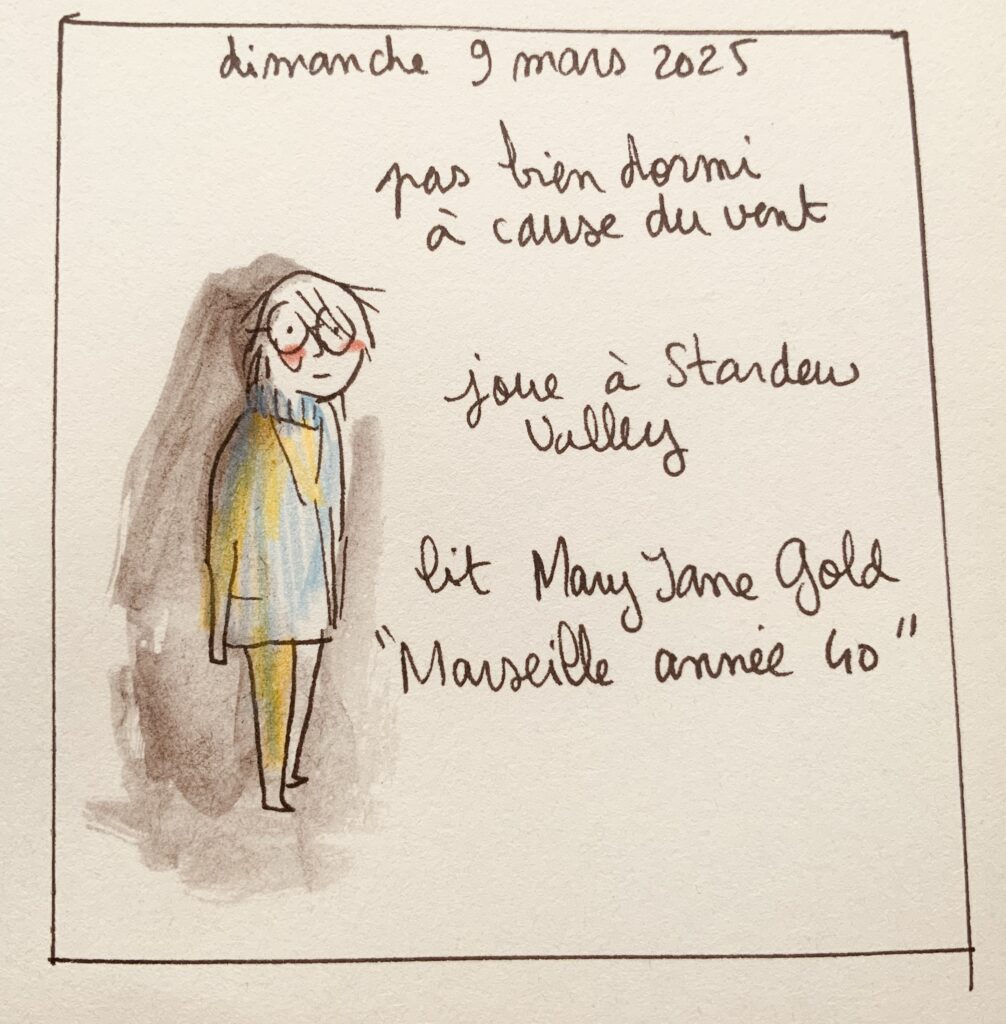 dimanche 9 mars 2025
pas bien dormi
à cause du vent
joue à Stardew
Valley
lit Mary Jane Gold
"Marseille année 40"